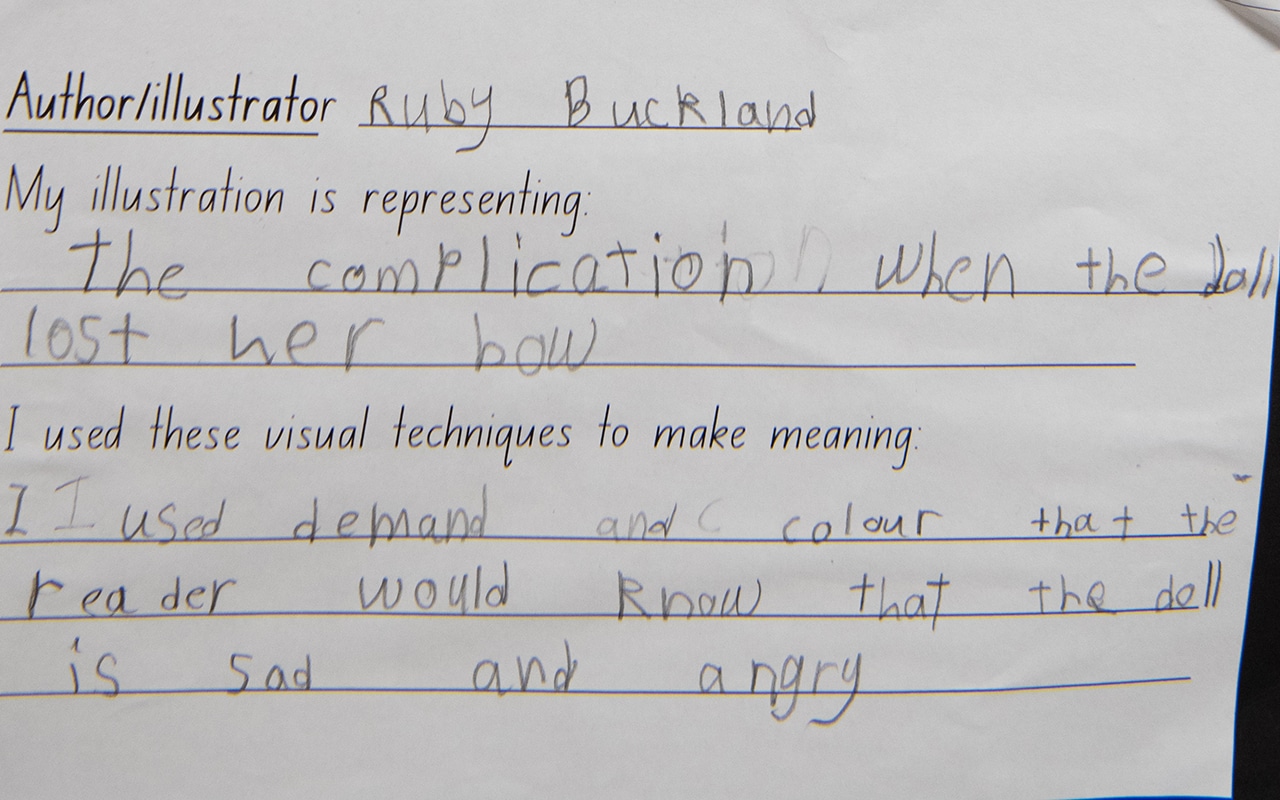 Author/illustrator Ruby Buckland
My illustration is representing:
the complication when the doll
lost her bow
I used these visual techniques to make meaning:
I I used demand and c colour that the
reader would know that the doll
is sad and angry